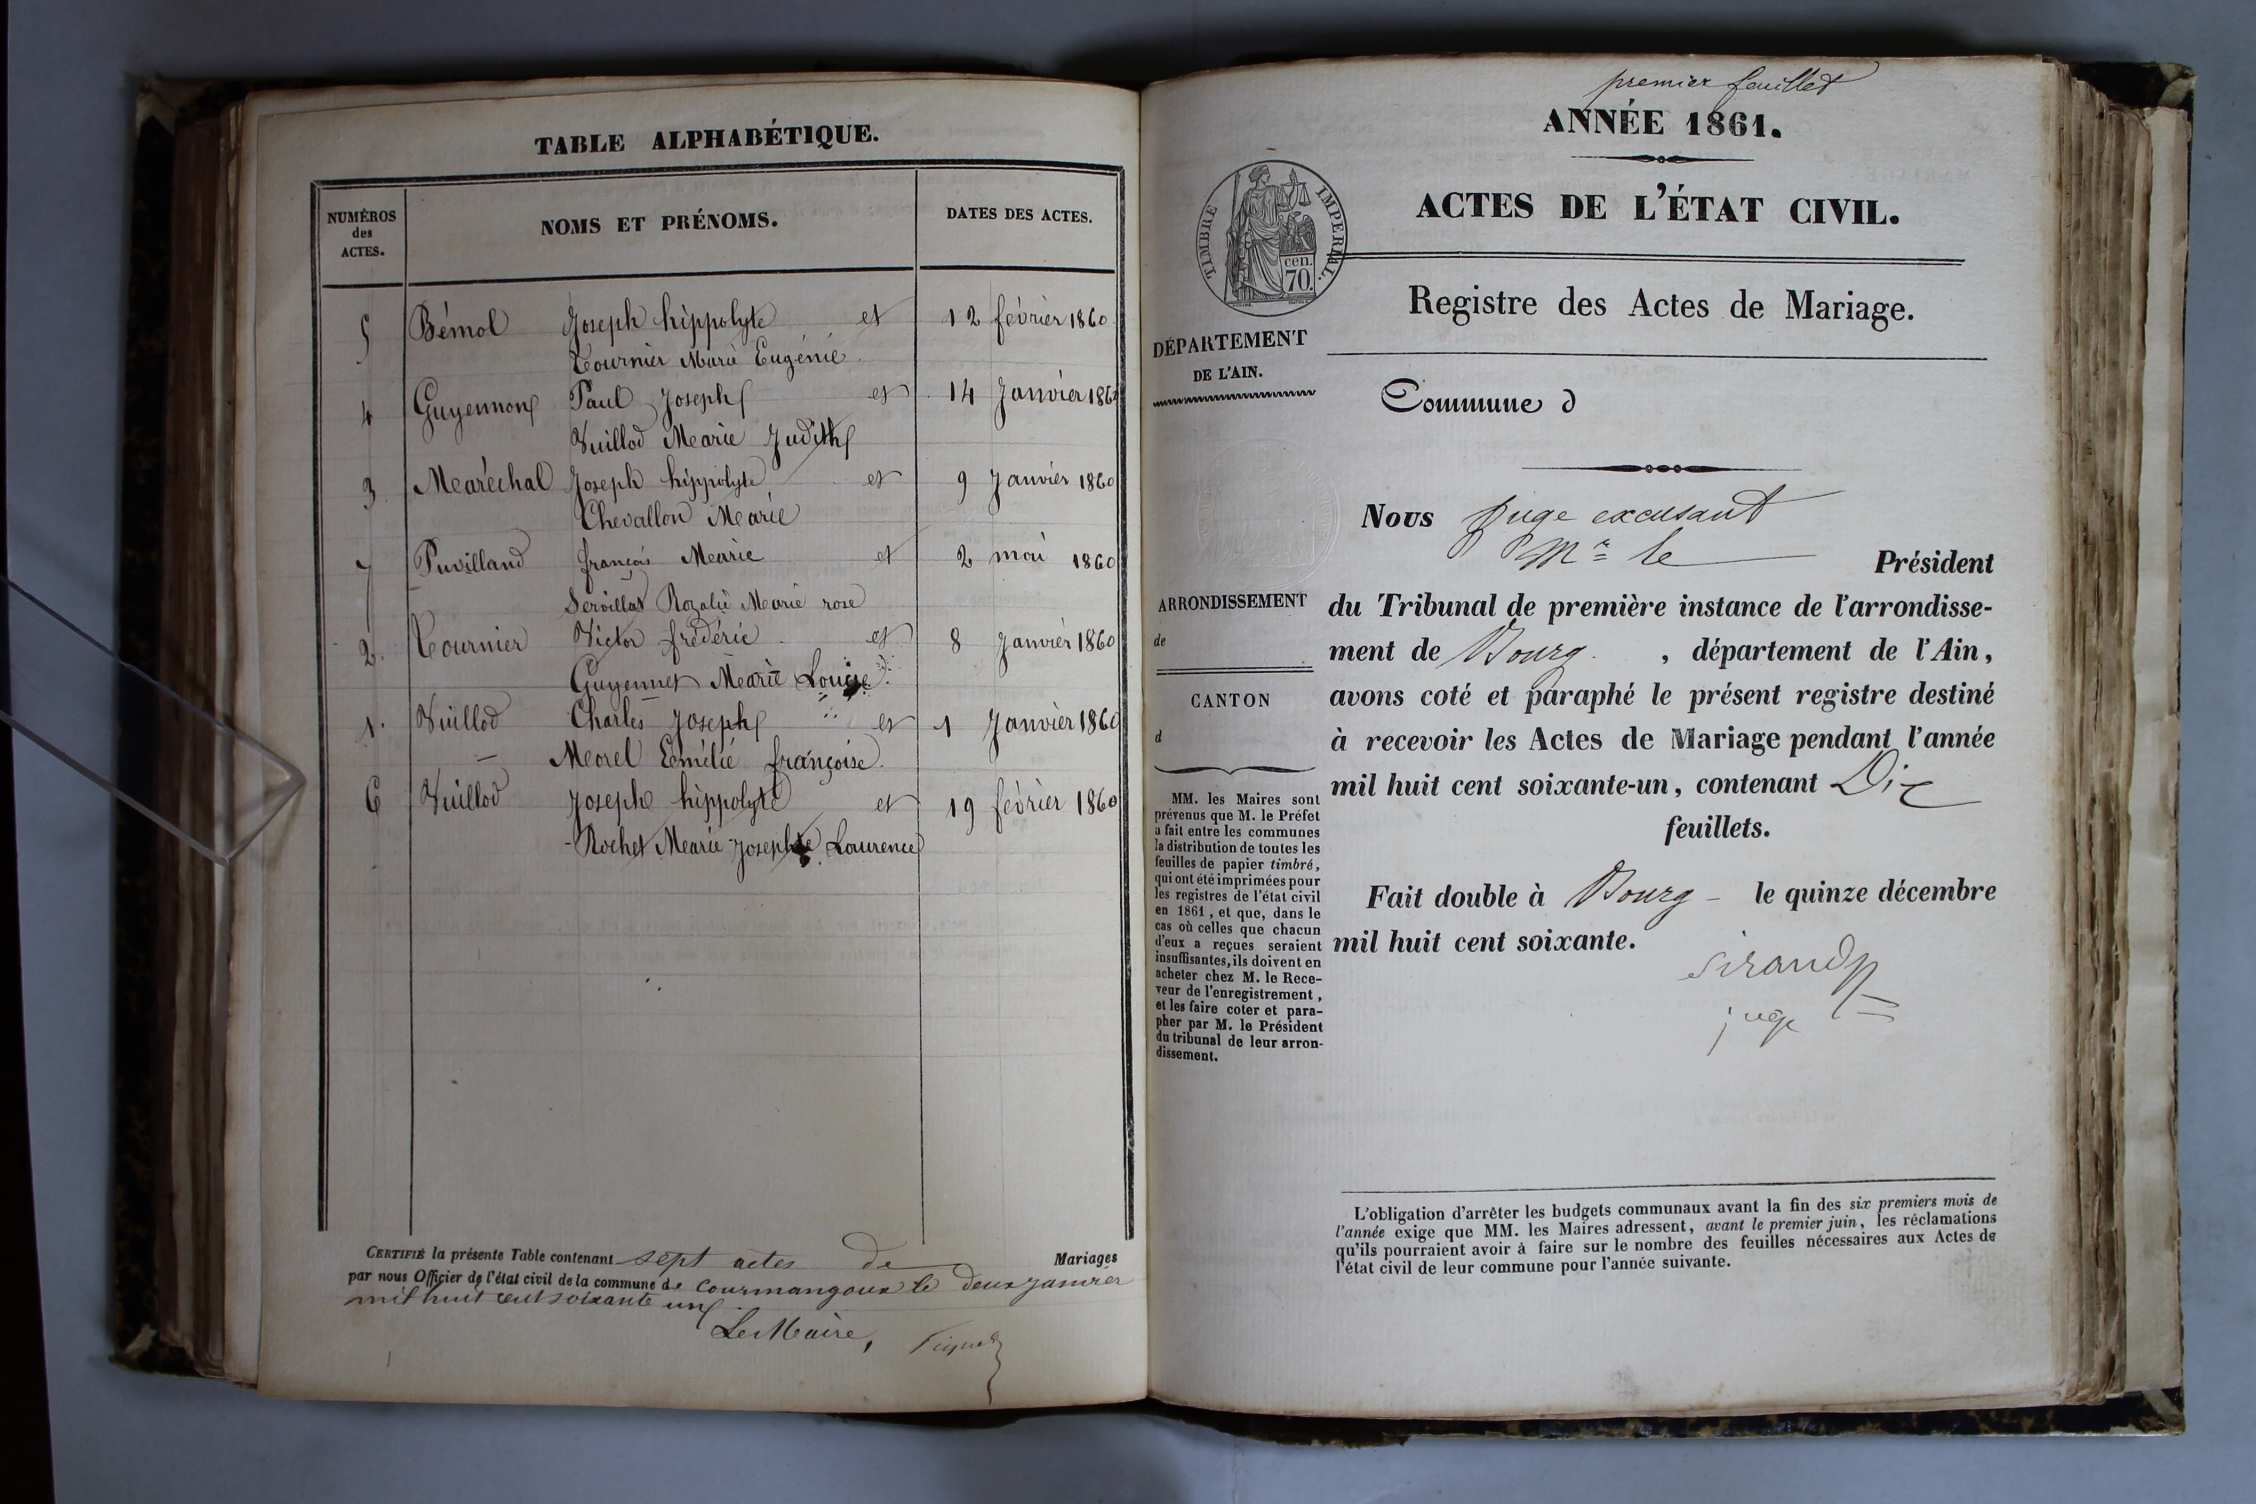 TABLE ALPHABÉTIQUE.
NUMÉROS
des
ACTES.
NOMS ET PRÉNOMS.
DATES DES ACTES.
5 Bémol Joseph hippolyte et 12 février 1860
Tournier Marie Eugénie
4 Guyennon Paul Joseph et 14 Janvier 1860
Vuillod Marie Judith
3 Maréchal Joseph hippolyte et 9 Janvier 1860
Chevallon Marie
7 Puvilland françois Marie et 2 mai 1860
Servillat Rozalie Marie rose
2. Tournier Victor frédéric et 8 Janvier 1860
Guyennet Marie Louise
1. Vuillod Charles Joseph et 1 Janvier 1860
Morel Emélie françoise.
6 Vuillod Joseph hippolyte et 19 février 1860
Rochet Marie Josephte Laurence
CERTIFIÉ la présente Table contenant sept actes de Mariages
par nous Officier de l'état civil de la commune de Courmangoux le deux Janvier
mil huit cent soixante un
Le Maire,
premier feuillet
ANNÉE 1861.
ACTES DE L'ÉTAT CIVIL.
TIMBRE IMPERIAL.
cen.
70.
Registre des Actes de Mariage.
DÉPARTEMENT
DE L'AIN.
Commune d
Nous juge excusant
Mr le Président
du Tribunal de première instance de l'arrondisse-
ment de Bourg , département de l'Ain,
avons coté et paraphé le présent registre destiné
à recevoir les Actes de Mariage pendant l'année
mil huit cent soixante-un, contenant Dix
feuillets.
Fait double à Bourg - le quinze décembre
mil huit cent soixante.
Sirand
juge
ARRONDISSEMENT
de
CANTON
d
MM. les Maires sont
prévenus que M. le Préfet
a fait entre les communes
la distribution de toutes les
feuilles de papier timbré,
qui ont été imprimées pour
les registres de l'état civil
en 1861, et que, dans le
cas où celles que chacun
d'eux a reçues seraient
insuffisantes, ils doivent en
acheter chez M. le Rece-
veur de l'enregistrement,
et les faire coter et para-
pher par M. le Président
du tribunal de leur arron-
dissement.
L'obligation d'arrêter les budgets communaux avant la fin des six premiers mois de
l'année exige que MM. les Maires adressent, avant le premier juin, les réclamations
qu'ils pourraient avoir à faire sur le nombre des feuilles nécessaires aux Actes de
l'état civil de leur commune pour l'année suivante.